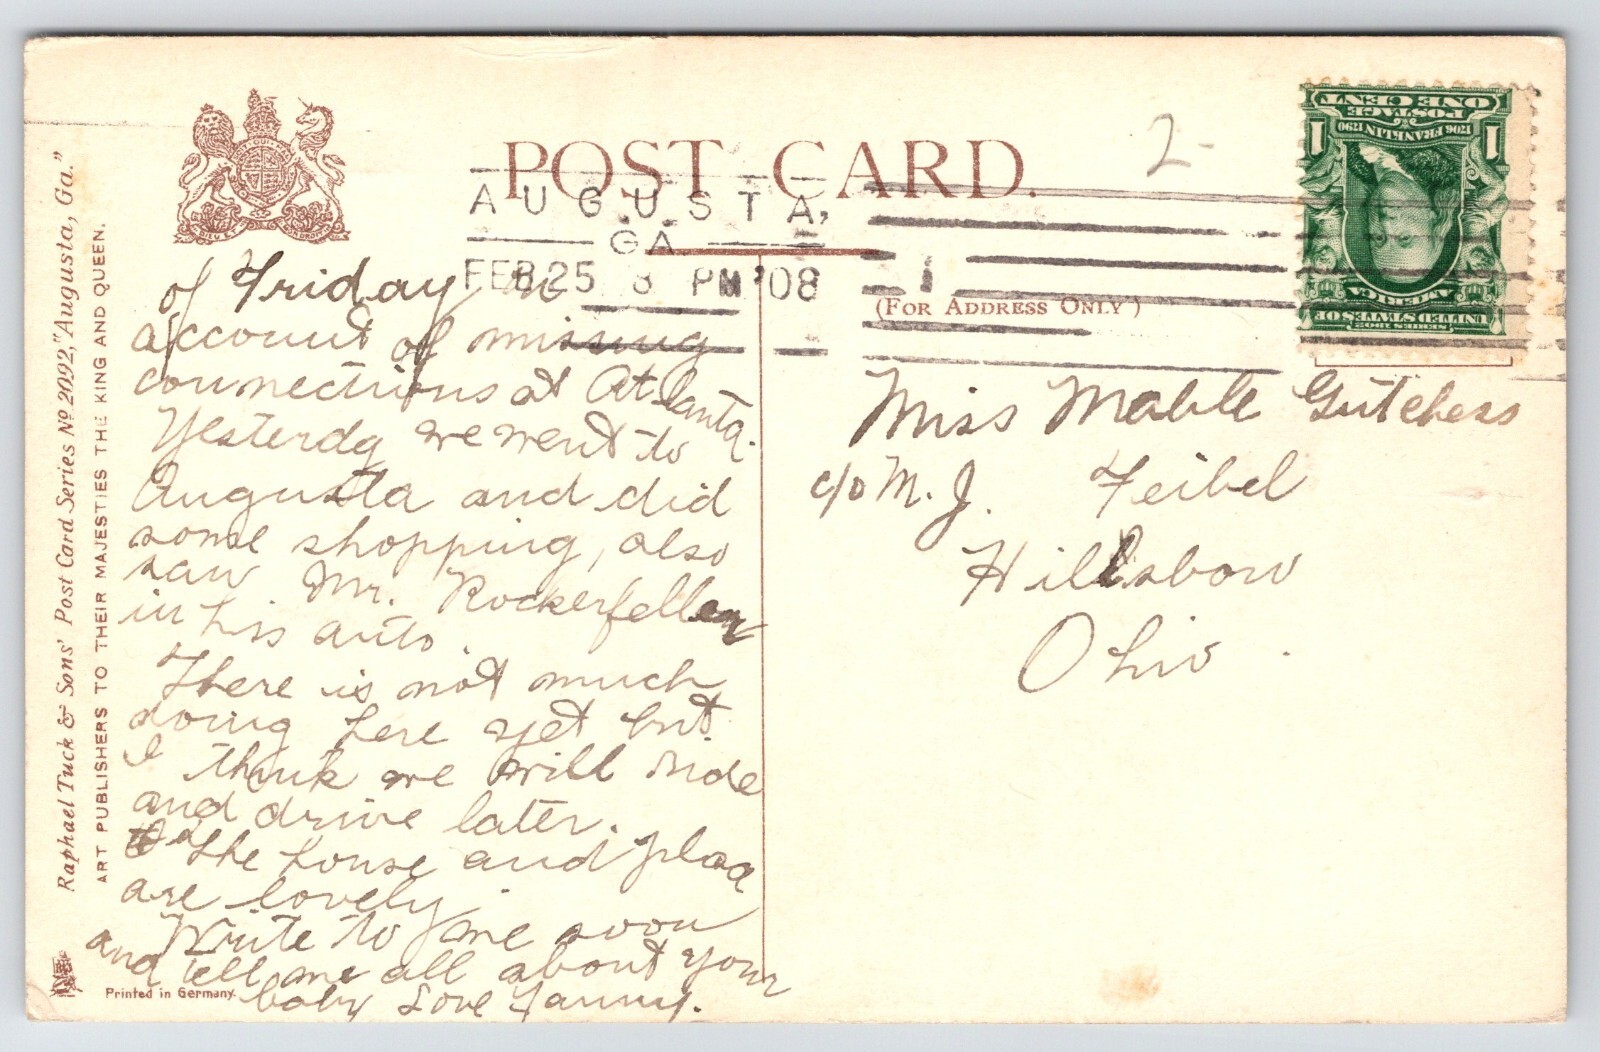 POST CARD.
2-
AUGUSTA,
GA
FEB 25 8 PM '08
(FOR ADDRESS ONLY)
SERIES 1902
UNITED STATES OF
AMERICA
1706 FRANKLIN 1790
POSTAGE
ONE CENT
1 1
Raphael Tuck & Sons' Post Card Series No 2092, "Augusta, Ga."
ART PUBLISHERS TO THEIR MAJESTIES THE KING AND QUEEN.
of Friday on
account of missing
connections at Atlanta.
Yesterdy we went to
Augusta and did
some shopping, also
saw Mr. Rockerfeller
in his auto.
There is not much
doing here yet but
I think we will ride
and drive later.
The house and place
are lovely.
Write to me soon
and tell me all about your
baby Love Fanny.
Printed in Germany.
Miss Mable Gutchess
c/o M. J. Feibel
Hillsborw
Ohio.